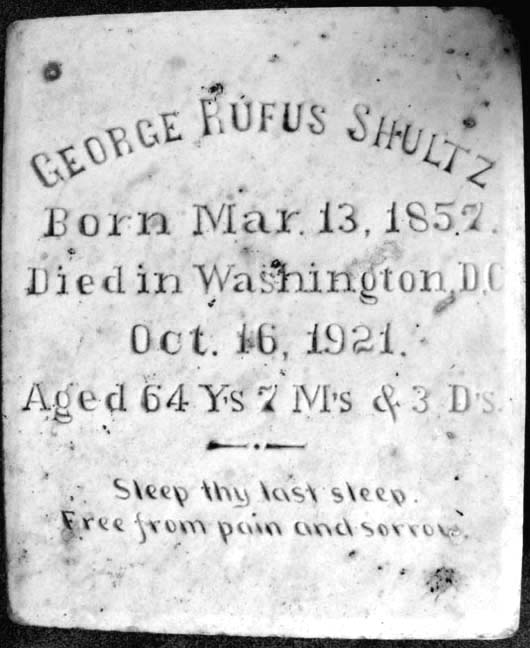 GEORGE RUFUS SHULTZ
Born Mar. 13, 1857.
Died in Washington, D.C
Oct. 16, 1921.
Aged 64 Y's 7 M's & 3 D's.
Sleep thy last sleep.
Free from pain and sorrow.